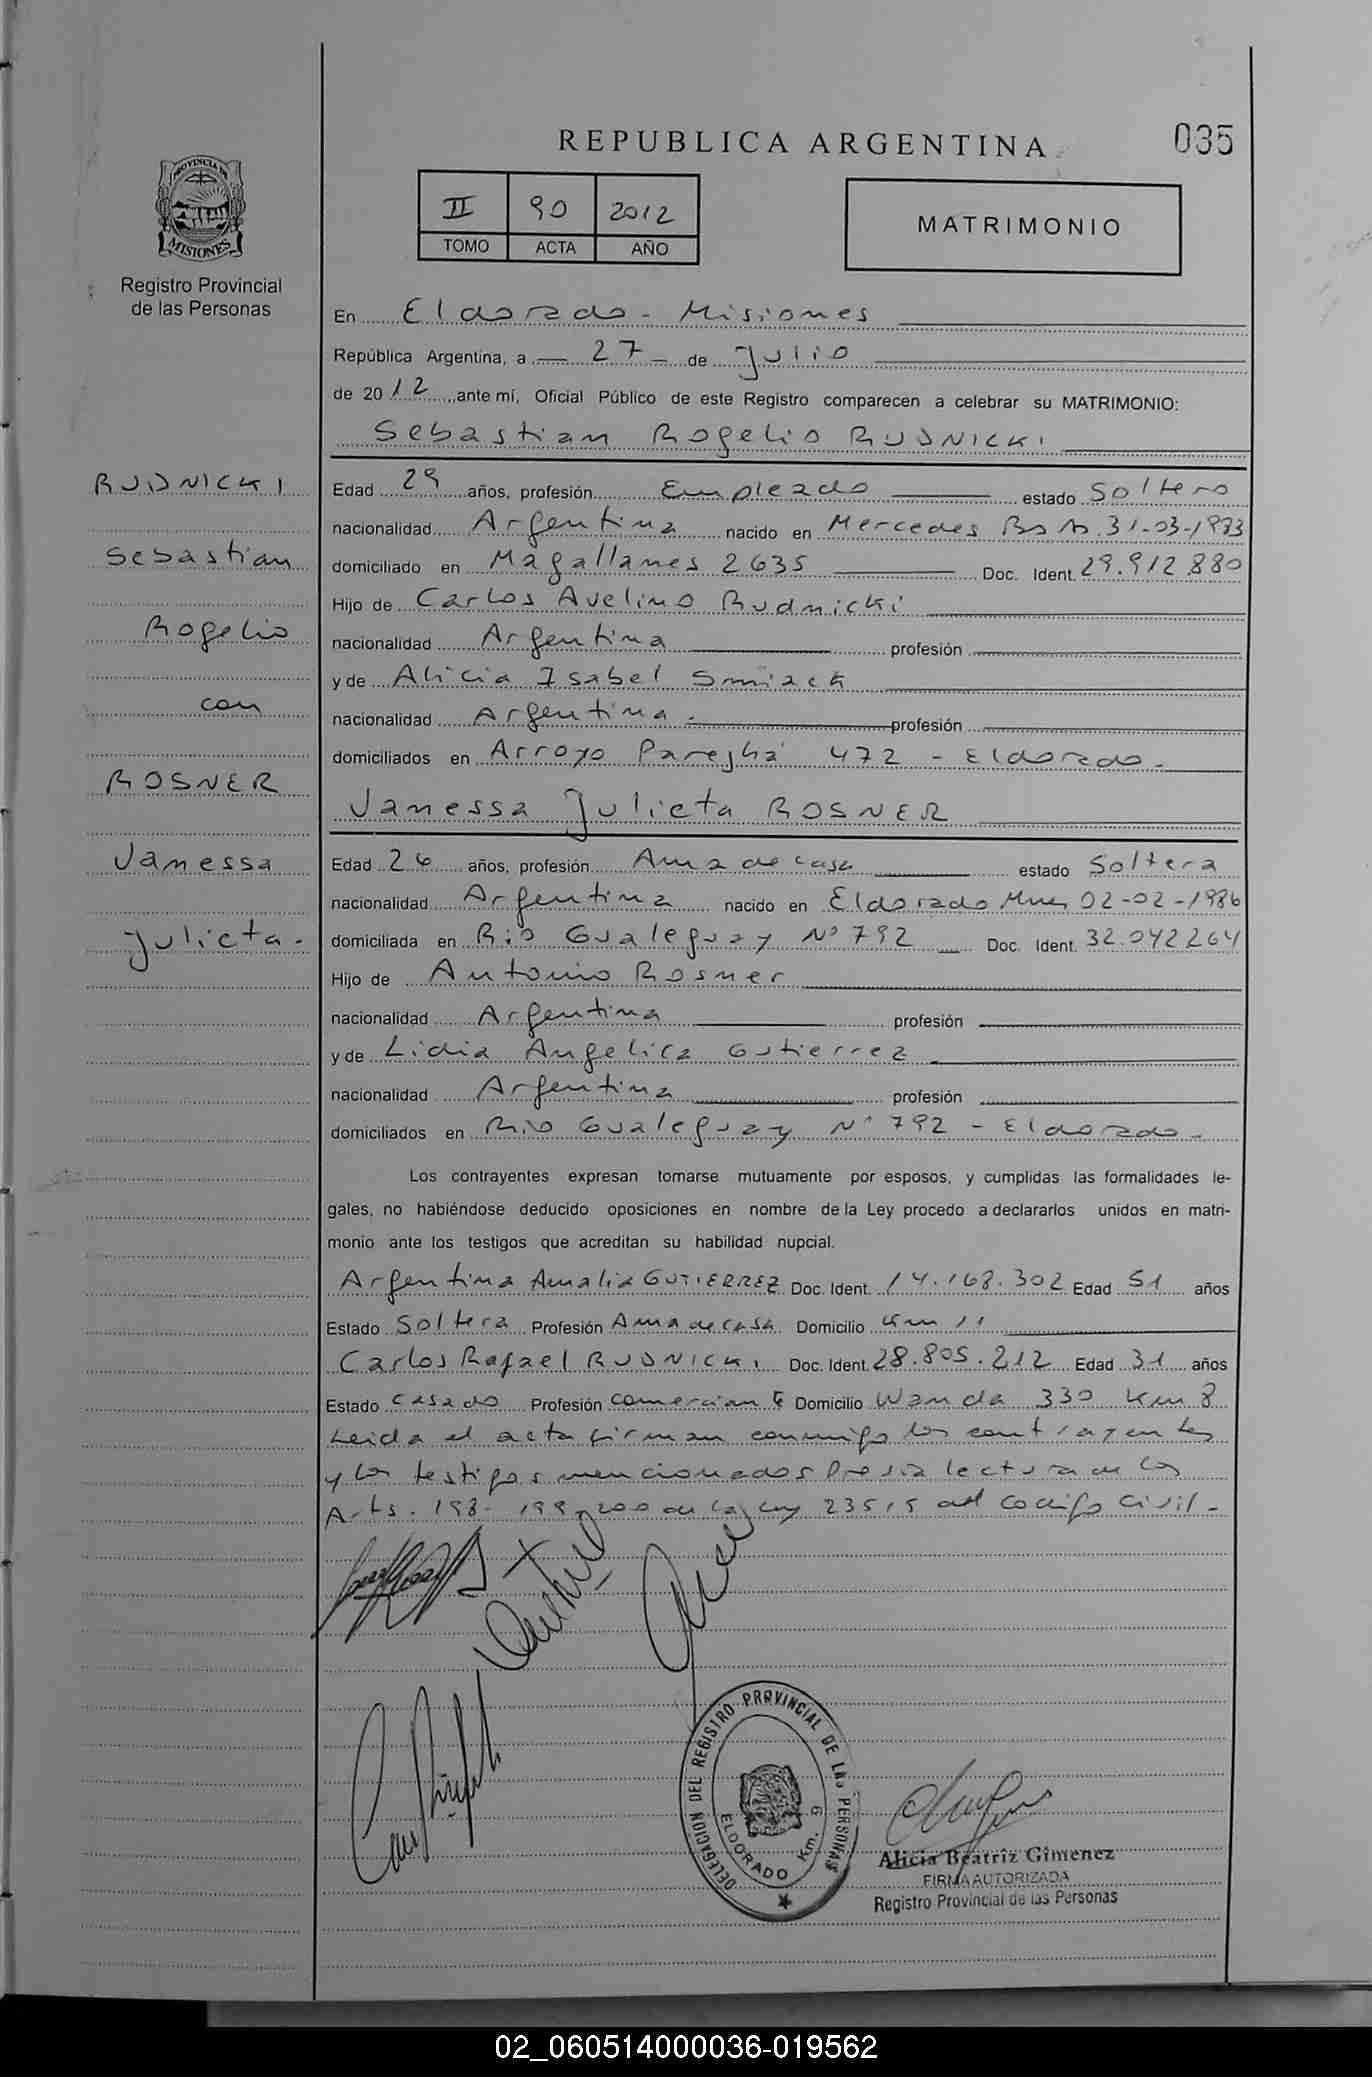 REPUBLICA ARGENTINA
035
PROVINCIA DE
MISIONES
Registro Provincial
de las Personas
II 90 2012
TOMO ACTA AÑO
MATRIMONIO
En Eldorado - Misiones
República Argentina, a 27 de Julio
de 2012, ante mí, Oficial Público de este Registro comparecen a celebrar su MATRIMONIO:
Sebastian Rogelio RUDNICKI
RUDNICKI
Sebastian
Rogelio
con
ROSNER
Vanessa
Julieta.
Edad 29 años, profesión Empleado estado Soltero
nacionalidad Argentina nacido en Mercedes Bs As 31-03-1983
domiciliado en Magallanes 2635 Doc. Ident. 29.912.880
Hijo de Carlos Avelino Rudnicki
nacionalidad Argentina profesión
y de Alicia Isabel Smiack
nacionalidad Argentina. profesión
domiciliados en Arroyo Parejha 472 - Eldorado.
Vanessa Julieta ROSNER
Edad 26 años, profesión Ama de casa estado Soltera
nacionalidad Argentina nacido en Eldorado Mnes 02-02-1986
domiciliada en Rio Gualeguay N° 792 Doc. Ident. 32.042264
Hijo de Antonio Rosner
nacionalidad Argentina profesión
y de Lidia Angelica Gutierrez
nacionalidad Argentina profesión
domiciliados en Rio Gualeguay N° 792 - Eldorado.
Los contrayentes expresan tomarse mutuamente por esposos, y cumplidas las formalidades le-
gales, no habiéndose deducido oposiciones en nombre de la Ley procedo a declararlos unidos en matri-
monio ante los testigos que acreditan su habilidad nupcial.
Argentina Amalia GUTIERREZ Doc. Ident. 14.168.302 Edad 51 años
Estado Soltera Profesión Ama de casa Domicilio Km 11
Carlos Rafael RUDNICKI Doc. Ident. 28.805.212 Edad 31 años
Estado Casado Profesión Comerciante Domicilio Wanda 330 Km 8
Leida el acta firman conmigo los contrayentes
y los testigos mencionados previa lectura de los
Arts. 198-199-200 de la Ley 23515 del Codigo Civil-
DELEGACION DEL REGISTRO PROVINCIAL DE LAS PERSONAS
ELDORADO Km. 9
Alicia Beatriz Gimenez
FIRMA AUTORIZADA
Registro Provincial de las Personas
02_060514000036-019562